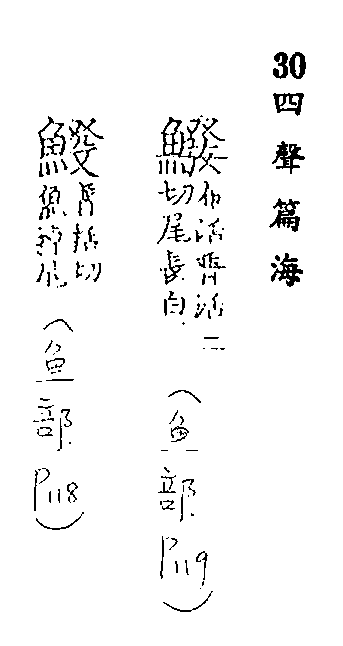 30四聲篇海
伯活普活二
切尾長白
(魚部P119)
普括切
魚尾
(魚部P118)